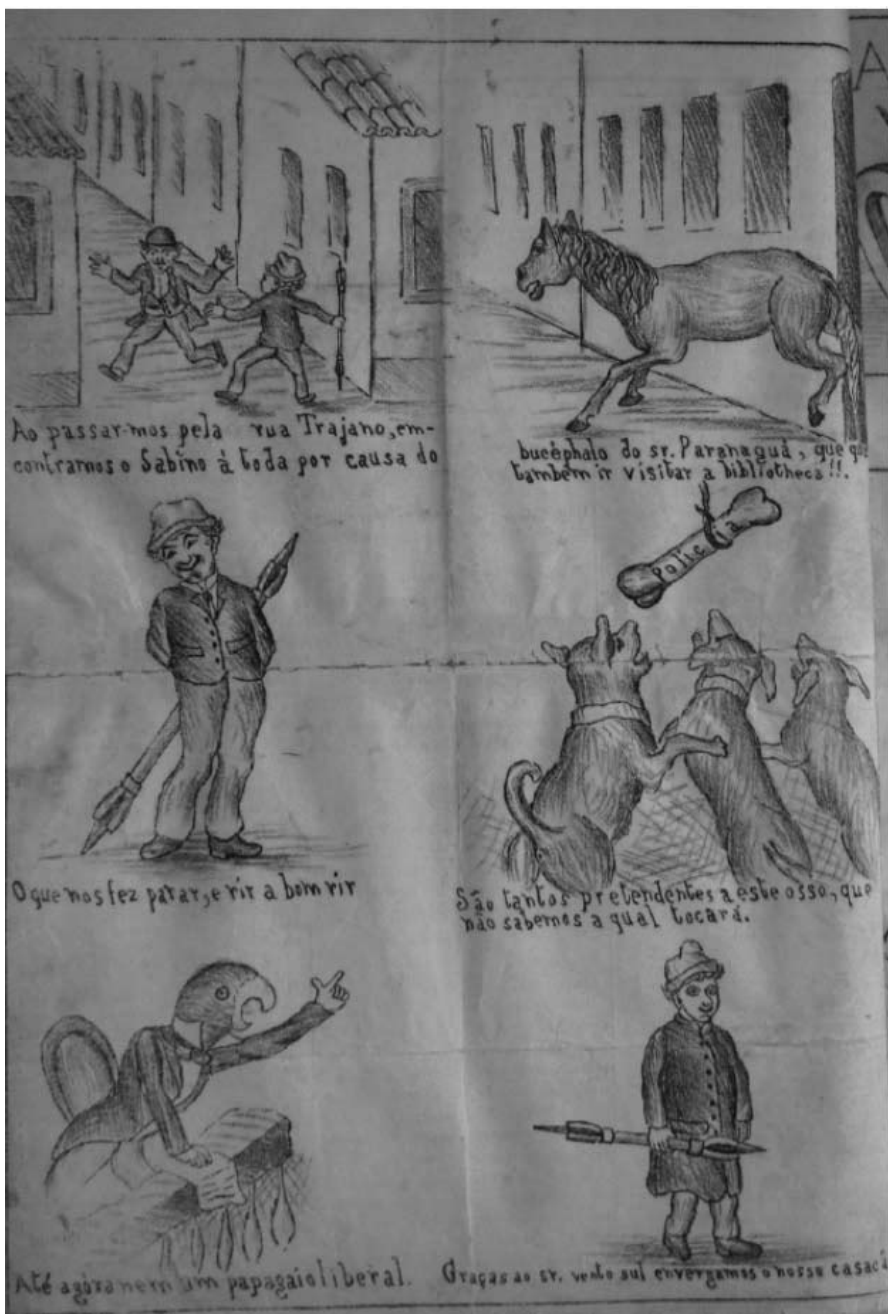 Ao passar-mos pela rua Trajano, em-
contramos o Sabino á toda por causa do
bucéphalo do sr. Paranaguá, que
tambem ir visitar a bibliotheca!!.
Policia
O que nos fez parar, e rir a bom rir
São tantos pretendentes a este osso, que
não sabemos a qual tocará.
Até agóra nem um papagaio liberal.
Graças ao sr. vento sul envergamos o nosso
A